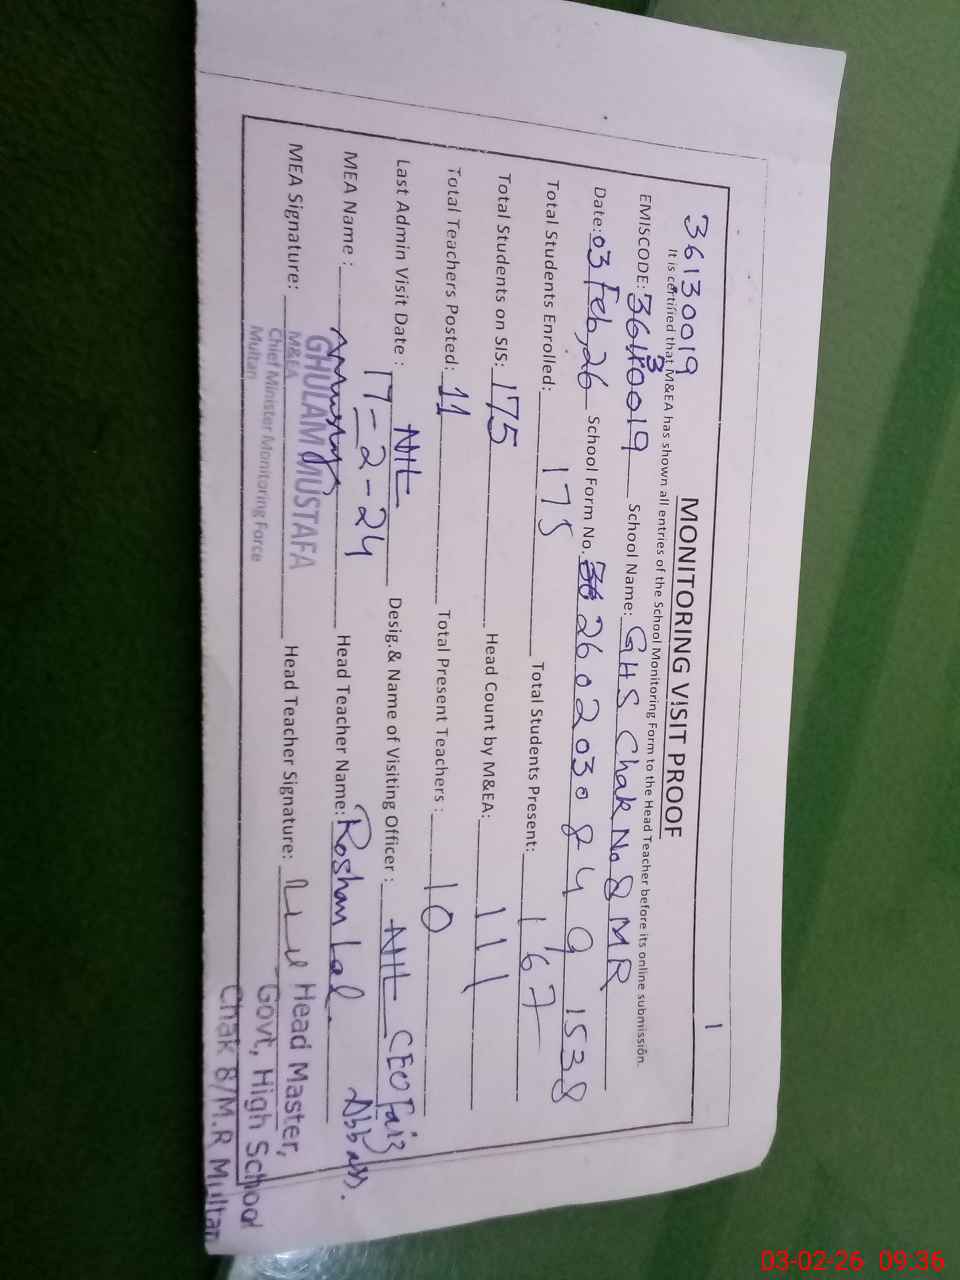 1
MONITORING VISIT PROOF
36130019
It is certified that M&EA has shown all entries of the School Monitoring Form to the Head Teacher before its online submission.
EMISCODE: 36130019 School Name: GHS Chak No 8 MR
Date: 03 Feb, 26 School Form No. 26020308491538
Total Students Enrolled: 175 Total Students Present: 167
Total Students on SIS: 175 Head Count by M&EA: 111
Total Teachers Posted: 11 Total Present Teachers : 10
Last Admin Visit Date : NIL 17-2-24 Desig.& Name of Visiting Officer : NIL CEO Faiz Abbass.
MEA Name : Head Teacher Name: Roshan Lal.
MEA Signature: Head Teacher Signature:
GHULAM MUSTAFA
M&EA
Chief Minister Monitoring Force
Multan
Head Master,
Govt, High School
Chak 8/M.R Multan
03-02-26 09:36